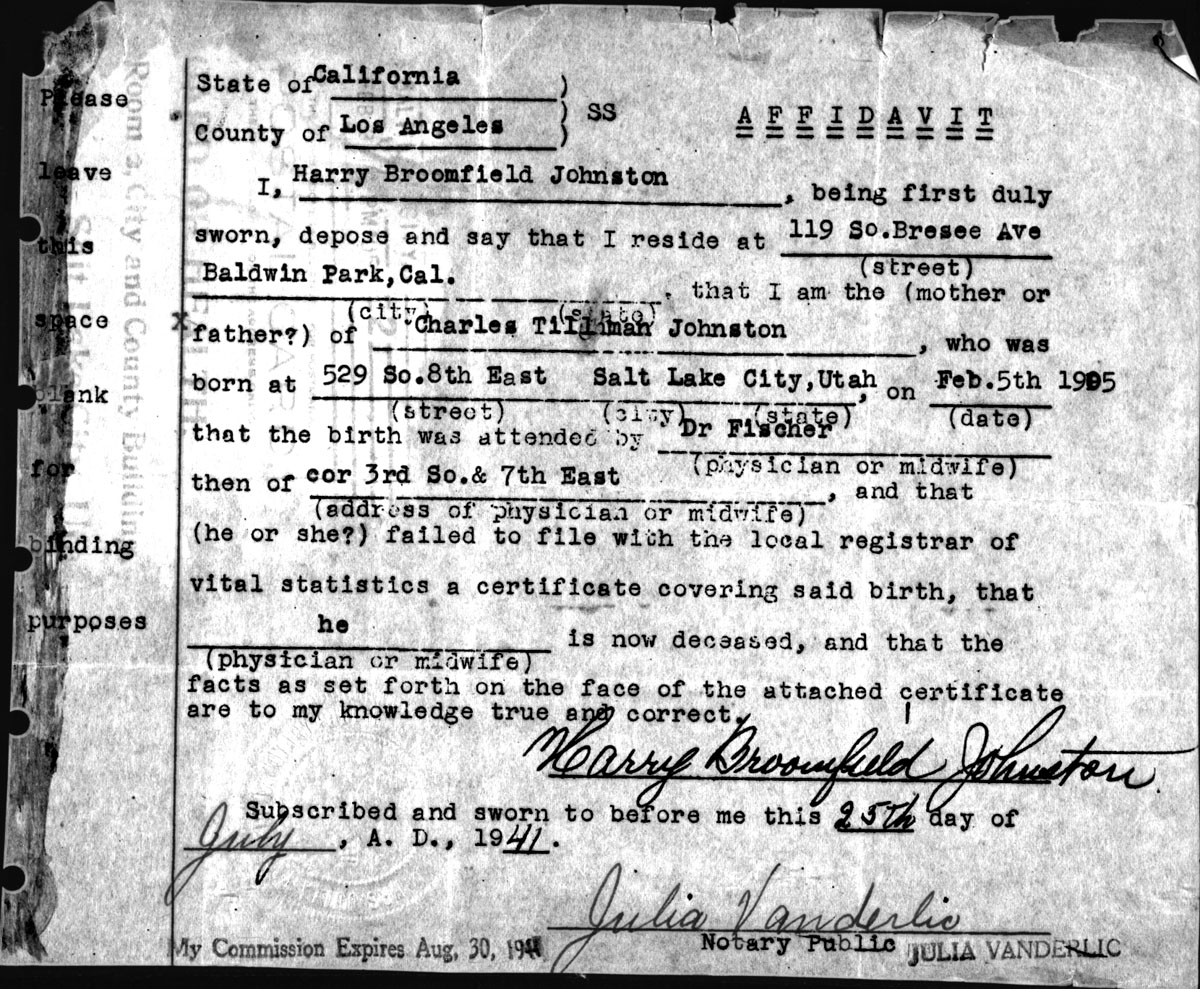 State of California )
) SS
County of Los Angeles )
AFFIDAVIT
I, Harry Broomfield Johnston, being first duly
sworn, depose and say that I reside at 119 So.Bresee Ave
(street)
Baldwin Park,Cal., that I am the (mother or
(city) (state)
x father?) of Charles Tillman Johnston, who was
born at 529 So.8th East Salt Lake City,Utah, on Feb.5th 1905
(street) (city) (state) (date)
that the birth was attended by Dr Fischer
(physician or midwife)
then of cor 3rd So.& 7th East, and that
(address of physician or midwife)
(he or she?) failed to file with the local registrar of
vital statistics a certificate covering said birth, that
he is now deceased, and that the
(physician or midwife)
facts as set forth on the face of the attached certificate
are to my knowledge true and correct.
Harry Broomfield Johnston
Subscribed and sworn to before me this 25th day of
July, A. D., 1941.
Julia Vanderlic
Notary Public JULIA VANDERLIC
My Commission Expires Aug, 30, 1941
Please
leave
this
space
blank
for
binding
purposes
Room a City and County Building